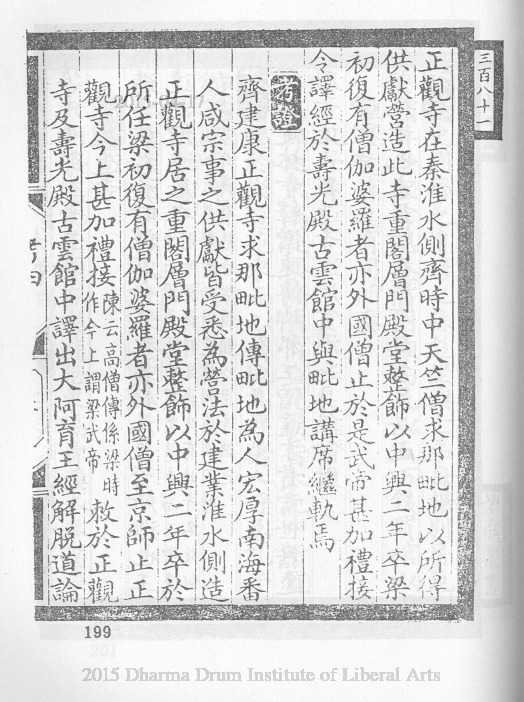 三百八十一
正觀寺在秦淮水側齊時中天竺僧求那毗地以所得
供獻營造此寺重閣層門殿堂整飾以中興二年卒梁
初復有僧伽婆羅者亦外國僧止於是武帝甚加禮接
今譯經於壽光殿古雲館中與毗地講席繼軌焉
考證
齊建康正觀寺求那毗地傳毗地為人宏厚南海番
人咸宗事之供獻皆受悉為營法於建業淮水側造
正觀寺居之重閣層門殿堂整飾以中興二年卒於
所任梁初復有僧伽婆羅者亦外國僧至京師止正
觀寺今上甚加禮接陳云高僧傳係梁時作今上謂梁武帝敕於正觀
寺及壽光殿古雲館中譯出大阿育王經解脫道論
199
2015 Dharma Drum Institute of Liberal Arts